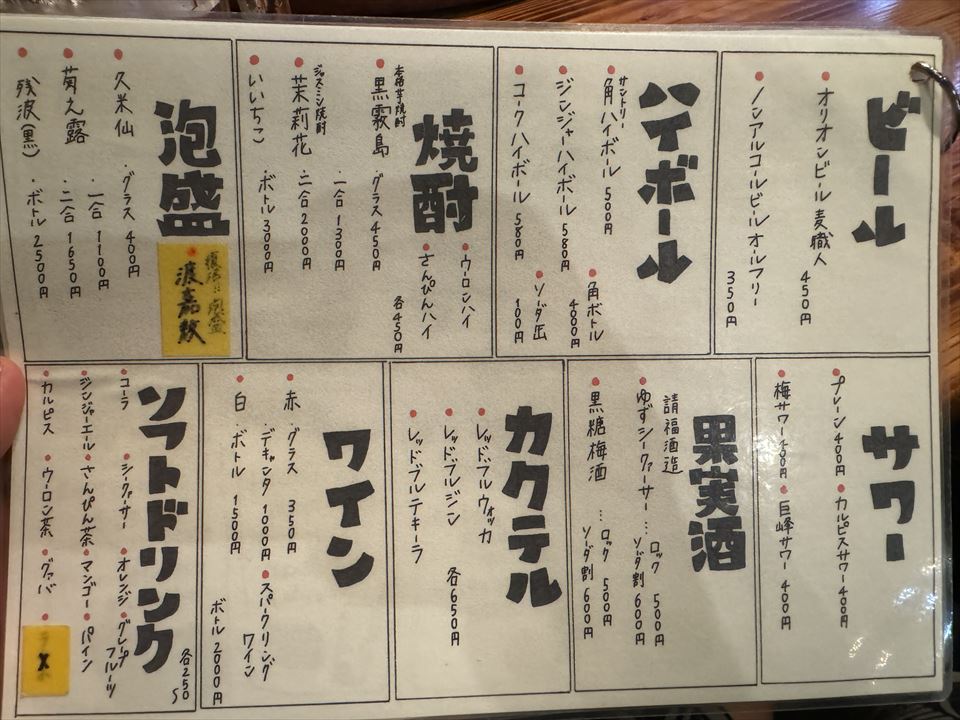 ビール
オリオンビール 麦職人
450円
ノンアルコールビール オルフリー
350円
ハイボール
サントリー
角ハイボール 500円
ジンジャーハイボール 580円
コークハイボール 580円
角ボトル
4000円
ソーダ缶
100円
焼酎
ウーロンハイ
さんぴんハイ
各450円
本格芋焼酎
黒霧島
ジャスミン焼酎
茉莉花
いいちこ
・グラス 450円
・一合 1300円
・二合 2000円
・ボトル 3000円
泡盛
渡嘉敷
久米仙
菊之露
残波(黒)
・グラス 400円
・一合 1100円
・二合 1650円
・ボトル 2500円
サワー
プレーン 400円
カルピスサワー 400円
梅サワー 400円
巨峰サワー 400円
果実酒
請福酒造
ゆずシークァーサー … ロック 500円
ソーダ割 600円
黒糖梅酒 … ロック 500円
ソーダ割 600円
カクテル
レッドブルウォッカ
レッドブルジン
レッドブルテキーラ
各650円
ワイン
赤
白
・グラス 350円
・デキャンタ 1000円
・ボトル 1500円
スパークリング
ワイン
ボトル 2000円
ソフトドリンク
各250
〜
コーラ
シークァーサー
オレンジ
グレープ
フルーツ
ジンジャーエール
さんぴん茶
マンゴー
パイン
カルピス
ウーロン茶
グァバ